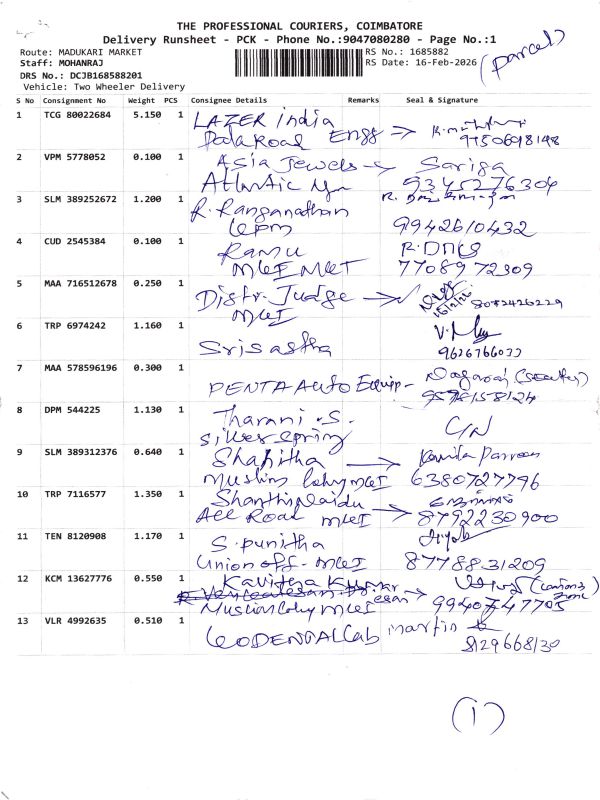 THE PROFESSIONAL COURIERS, COIMBATORE
Delivery Runsheet - PCK - Phone No.:9047080280 - Page No.:1
Route: MADUKARI MARKET RS No.: 1685882
Staff: MOHANRAJ RS Date: 16-Feb-2026 (parcel)
DRS No.: DCJB168588201
Vehicle: Two Wheeler Delivery
S No Consignment No Weight PCS Consignee Details Remarks Seal & Signature
1 TCG 80022684 5.150 1 LAZER india
Road Engg 9750698148
2 VPM 5778052 0.100 1 Asia Jewels Sariga
Atlantic 9345276304
3 SLM 389252672 1.200 1 R. Ranganathan
9942610432
4 CUD 2545384 0.100 1 Ramu
7708972309
5 MAA 716512678 0.250 1 Distr. Judge
16/2/26 8072426229
6 TRP 6974242 1.160 1 Srisastha
7 MAA 578596196 0.300 1 PENTA Auto Equip-
9578158124
8 DPM 544225 1.130 1 Tharani .S. C/N
silver spring
9 SLM 389312376 0.640 1 Shahitha
Muslim 6380727796
10 TRP 7116577 1.350 1 Shanthi Naidu
Road 8792230900
11 TEN 8120908 1.170 1 S. Punitha
Union off- 8778831209
12 KCM 13627776 0.550 1 Kavitha Kumar
Muslim 9940747705
13 VLR 4992635 0.510 1 DENTAL Lab martin
8129668130
(1)